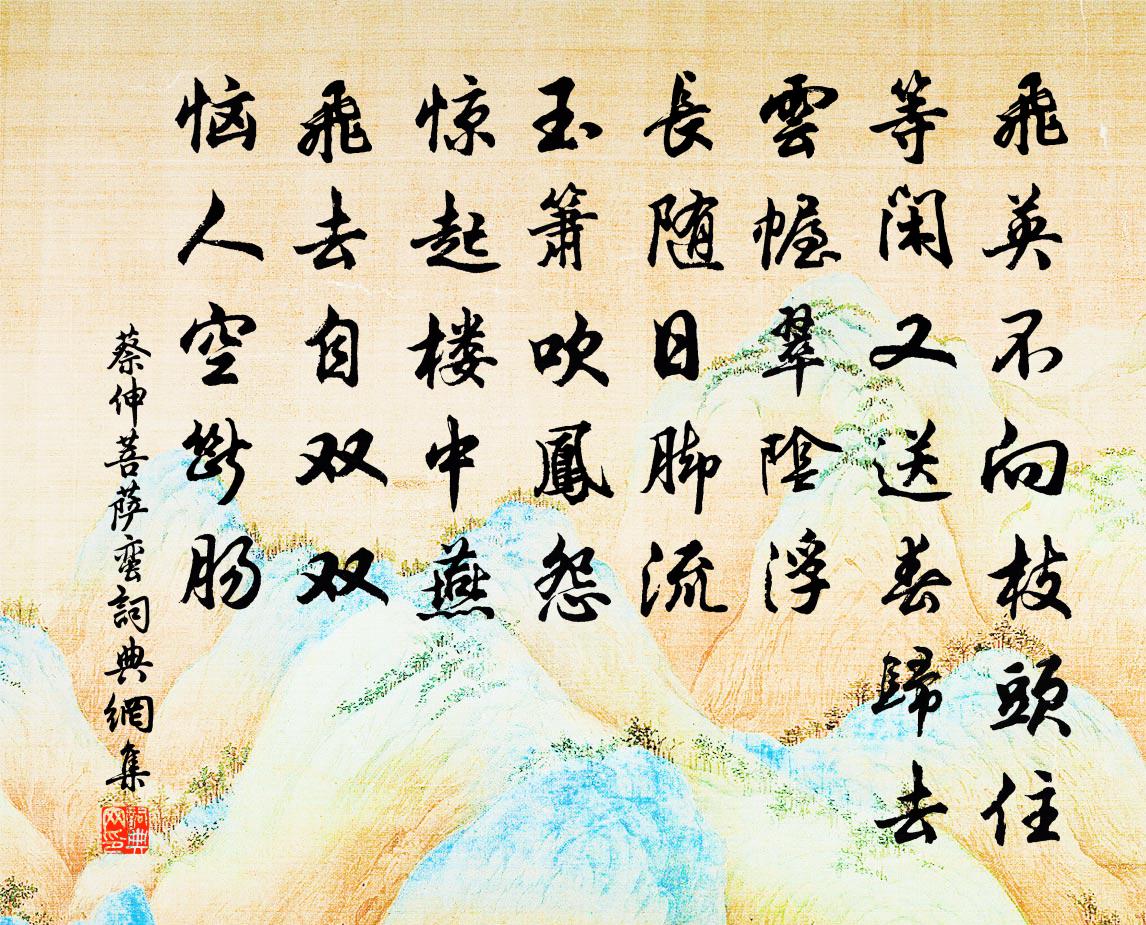 飛英不向枝頭住
等闲又送春歸去
雲幄翠陰浮
長随日脚流
玉箫吹鳳怨
惊起楼中燕
飛去自双双
恼人空断肠
蔡伸菩萨蛮詞典網集
詞典